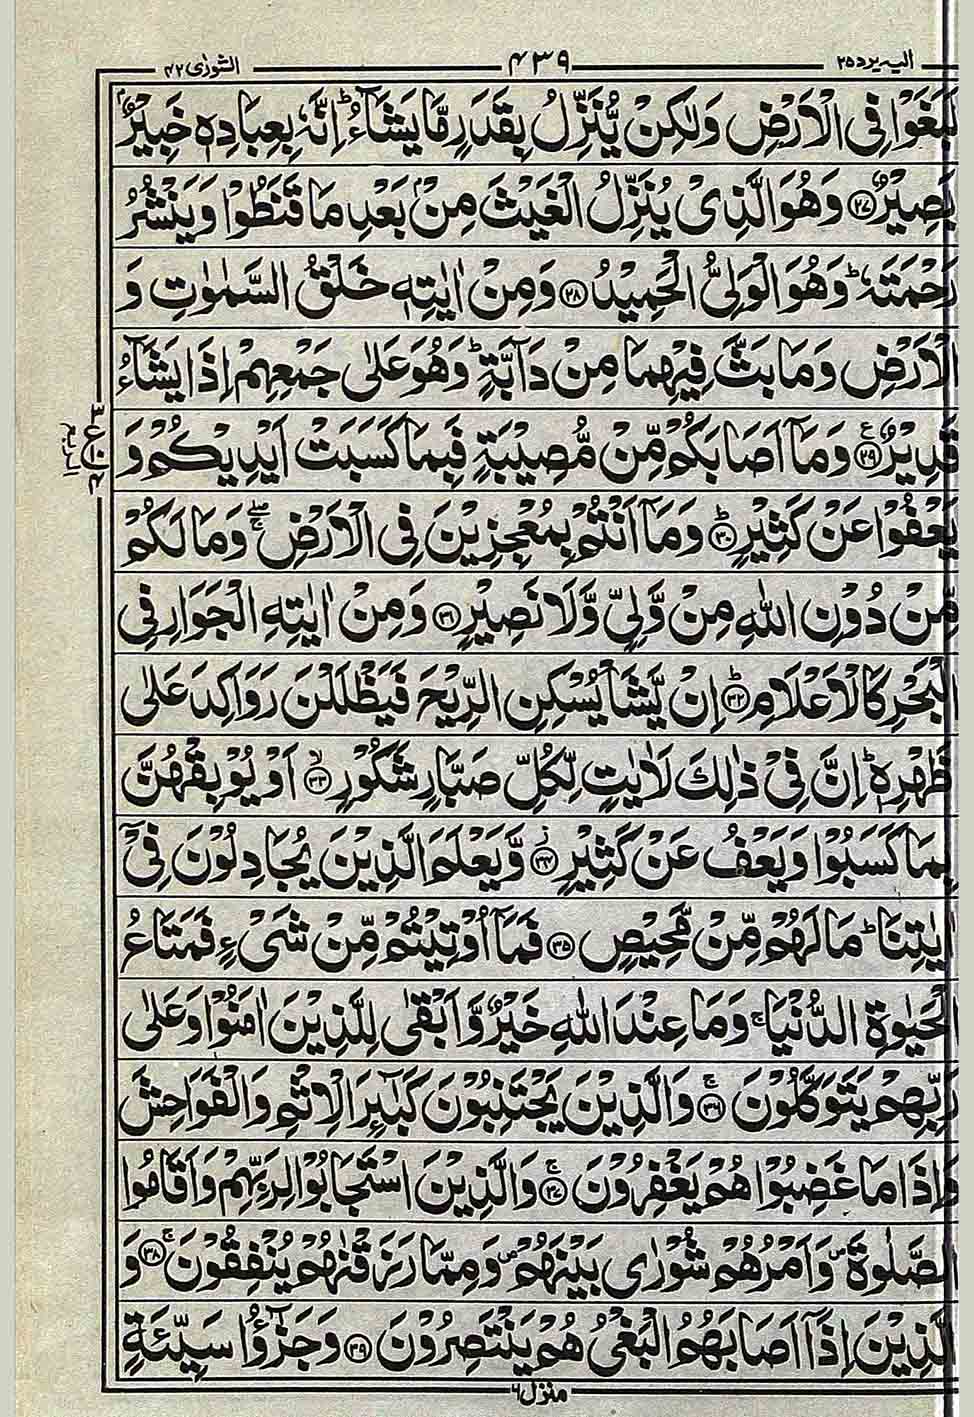 الیہ یرد ۲۵ ۴۳۹ الشورٰی ۴۲
لَبَغَوْا فِی الْاَرْضِ وَلٰكِنْ یُّنَزِّلُ بِقَدَرٍ مَّا یَشَآءُ ؕ اِنَّهٗ بِعِبَادِهٖ خَبِیْرٌۢ
بَصِیْرٌ ﴿۲۷﴾ وَهُوَ الَّذِیْ یُنَزِّلُ الْغَیْثَ مِنْۢ بَعْدِ مَا قَنَطُوْا وَیَنْشُرُ
رَحْمَتَهٗ ؕ وَهُوَ الْوَلِیُّ الْحَمِیْدُ ﴿۲۸﴾ وَمِنْ اٰیٰتِهٖ خَلْقُ السَّمٰوٰتِ وَ
الْاَرْضِ وَمَا بَثَّ فِیْهِمَا مِنْ دَآبَّةٍ ؕ وَهُوَ عَلٰی جَمْعِهِمْ اِذَا یَشَآءُ
قَدِیْرٌ ﴿۲۹﴾ ع وَمَاۤ اَصَابَكُمْ مِّنْ مُّصِیْبَةٍ فَبِمَا كَسَبَتْ اَیْدِیْكُمْ وَ
یَعْفُوْا عَنْ كَثِیْرٍ ﴿۳۰﴾ؕ وَمَاۤ اَنْتُمْ بِمُعْجِزِیْنَ فِی الْاَرْضِ ۖۚ وَمَا لَكُمْ
مِّنْ دُوْنِ اللّٰهِ مِنْ وَّلِیٍّ وَّلَا نَصِیْرٍ ﴿۳۱﴾ وَمِنْ اٰیٰتِهِ الْجَوَارِ فِی
الْبَحْرِ كَالْاَعْلَامِ ﴿۳۲﴾ؕ اِنْ یَّشَاْ یُسْكِنِ الرِّیْحَ فَیَظْلَلْنَ رَوَاكِدَ عَلٰی
ظَهْرِهٖ ؕ اِنَّ فِیْ ذٰلِكَ لَاٰیٰتٍ لِّكُلِّ صَبَّارٍ شَكُوْرٍ ﴿۳۳﴾ۙ اَوْ یُوْبِقْهُنَّ
بِمَا كَسَبُوْا وَیَعْفُ عَنْ كَثِیْرٍ ﴿۳۴﴾ؗ وَّیَعْلَمَ الَّذِیْنَ یُجَادِلُوْنَ فِیْۤ
اٰیٰتِنَا ؕ مَا لَهُمْ مِّنْ مَّحِیْصٍ ﴿۳۵﴾ فَمَاۤ اُوْتِیْتُمْ مِّنْ شَیْءٍ فَمَتَاعُ
الْحَیٰوةِ الدُّنْیَا ۚ وَمَا عِنْدَ اللّٰهِ خَیْرٌ وَّاَبْقٰی لِلَّذِیْنَ اٰمَنُوْا وَعَلٰی
رَبِّهِمْ یَتَوَكَّلُوْنَ ﴿۳۶﴾ۚ وَالَّذِیْنَ یَجْتَنِبُوْنَ كَبٰٓئِرَ الْاِثْمِ وَالْفَوَاحِشَ
وَاِذَا مَا غَضِبُوْا هُمْ یَغْفِرُوْنَ ﴿۳۷﴾ۚ وَالَّذِیْنَ اسْتَجَابُوْا لِرَبِّهِمْ وَاَقَامُوا
الصَّلٰوةَ ۪ وَاَمْرُهُمْ شُوْرٰی بَیْنَهُمْ ۪ وَمِمَّا رَزَقْنٰهُمْ یُنْفِقُوْنَ ﴿۳۸﴾ۚ وَ
الَّذِیْنَ اِذَاۤ اَصَابَهُمُ الْبَغْیُ هُمْ یَنْتَصِرُوْنَ ﴿۳۹﴾ وَجَزٰٓؤُا سَیِّئَةٍ
منزل ۶
۳
ع
۱۰
۴